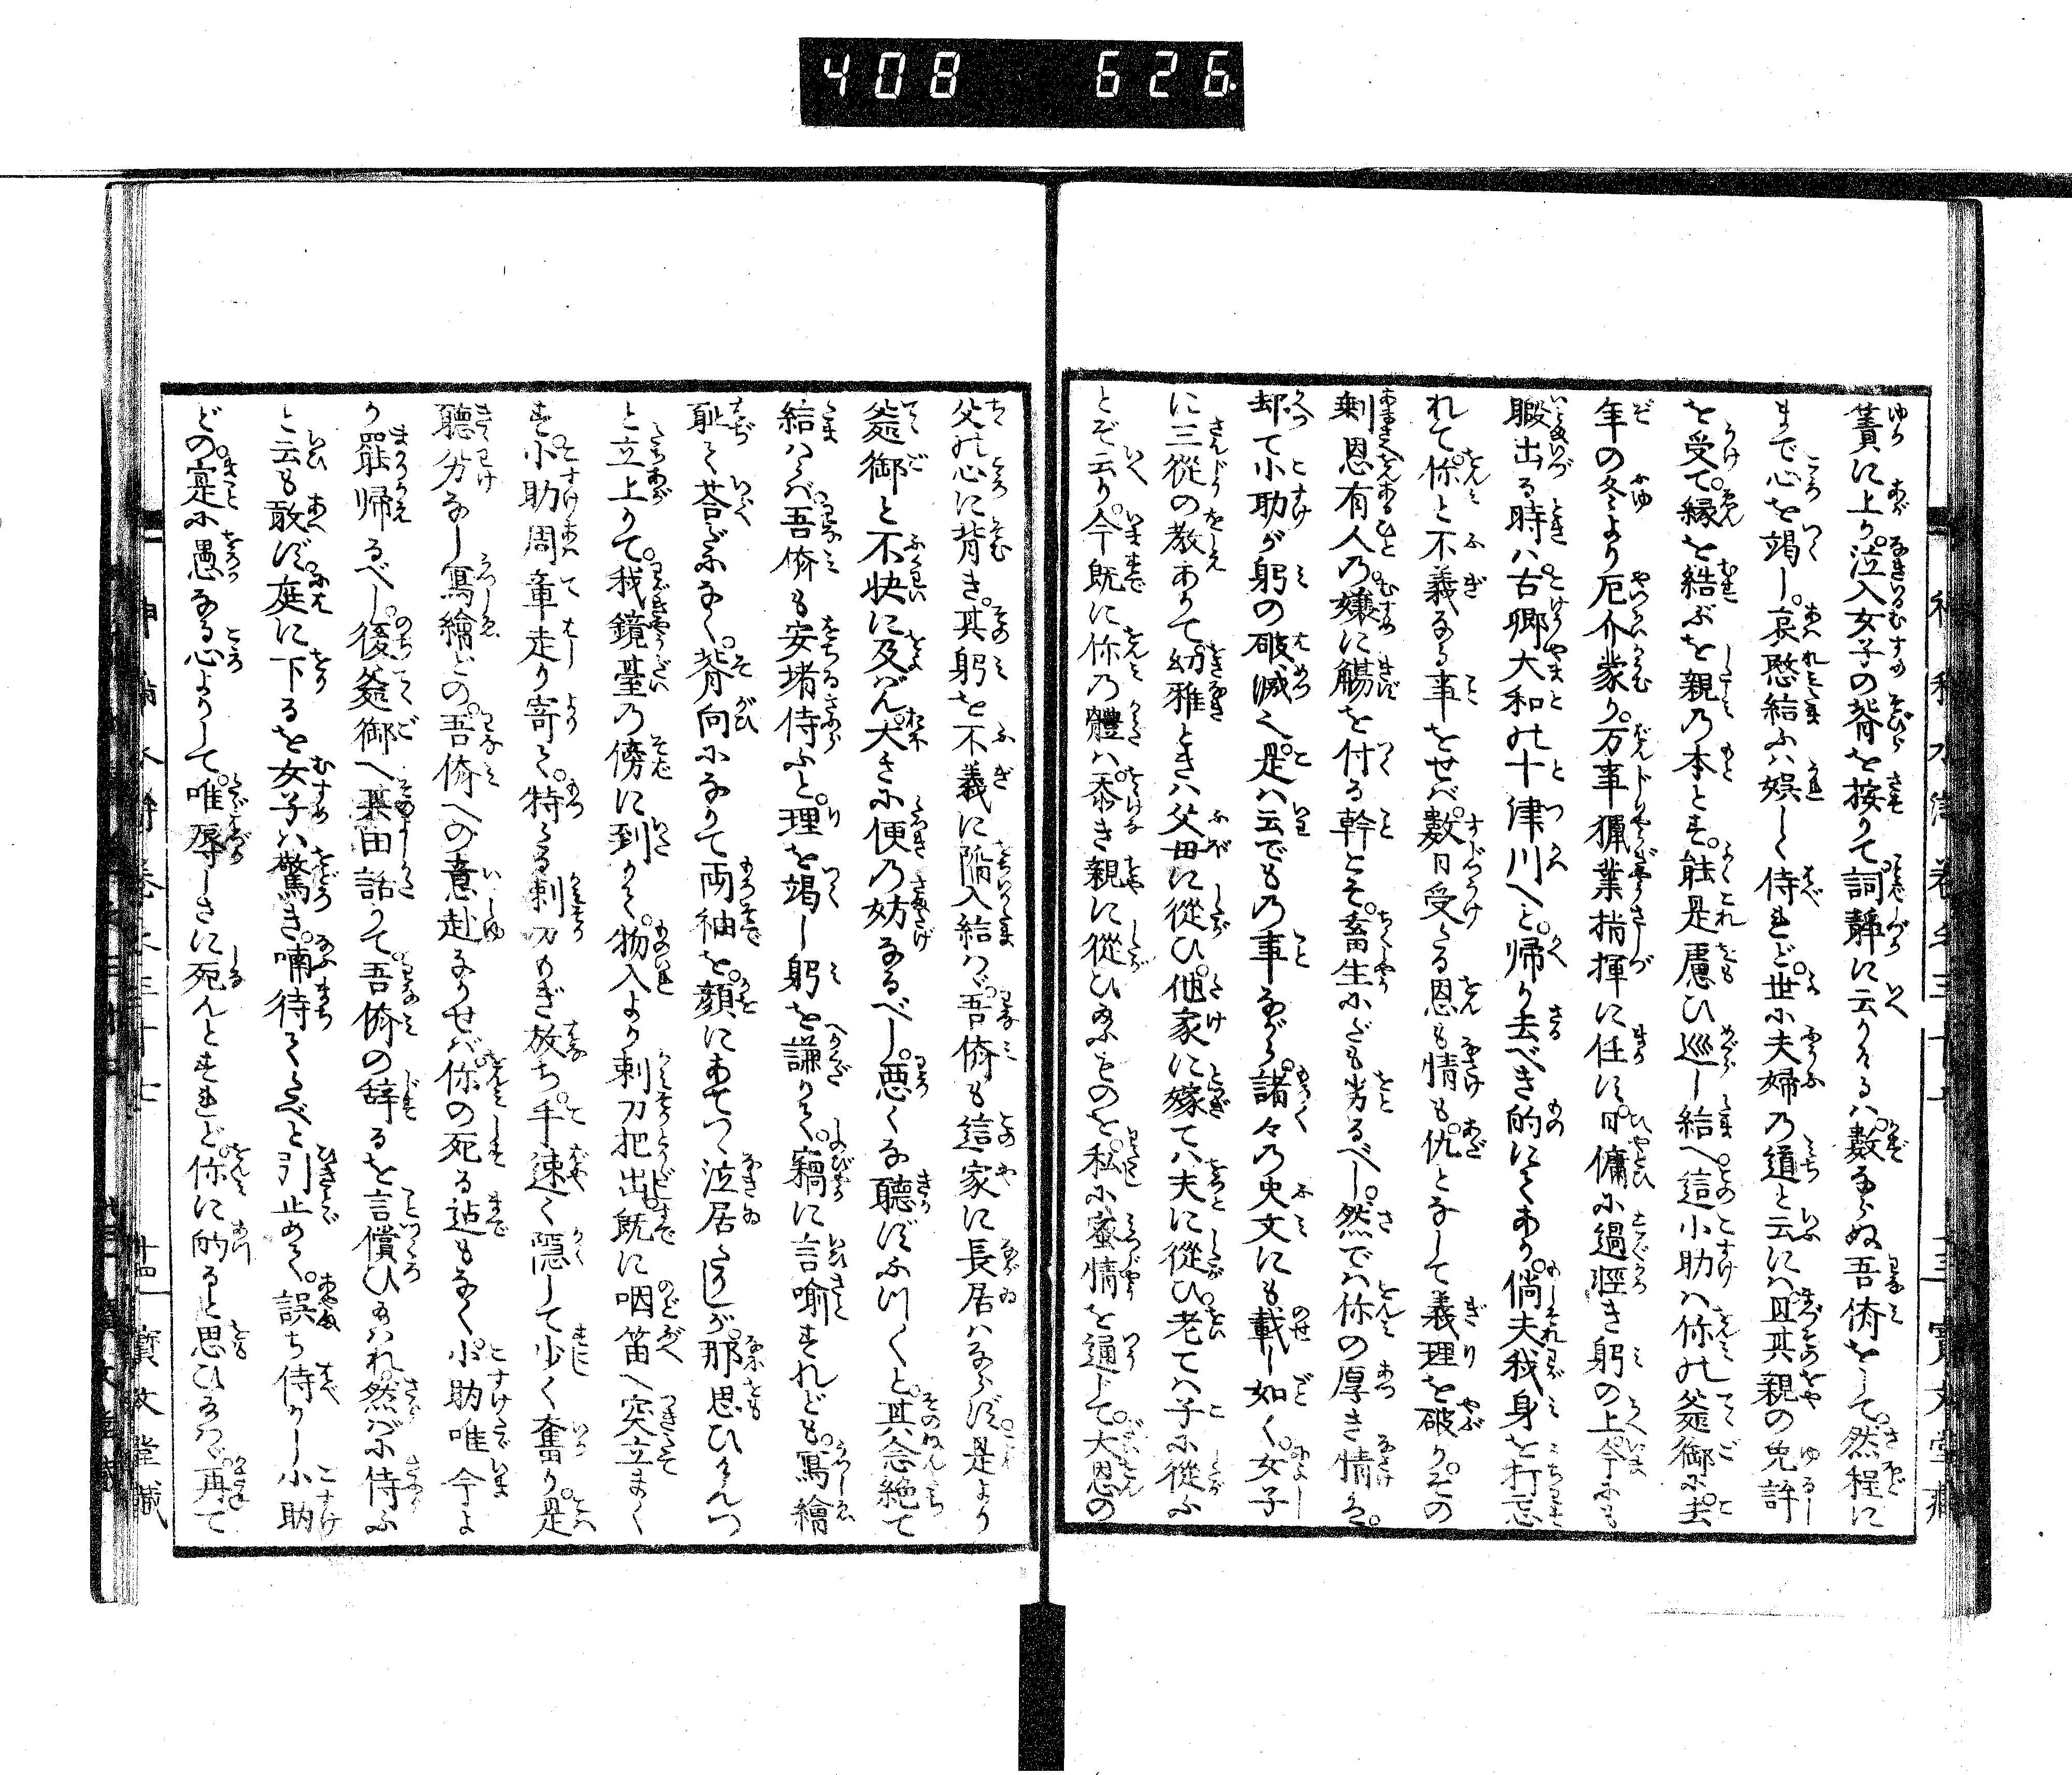 408 626
簀に上り。泣入女子の背を按りて。詞靜に云ひけるハ。數ならぬ吾儕をして。然程に
まで心を竭し。哀愍結ふハ娯しく侍れど。世に夫婦乃道と云にハ。且其親の免許
を受て。縁を結ぶを親乃本とす。能是慮ひ巡し結へ這小助ハ你の爺御に。去
年の冬より厄介蒙り。万事猟業指揮に任ず。日傭に過活き躬の上。今にも
暇出る時ハ。古郷大和の十津川へと。帰り去べき的にてあり。倘夫我身を打忘
れて。你と不義なる事をせバ。數日受たる恩も情も。仇となして義理を破り。その
剰恩有人乃孃に觴を付る幹とぞ。畜生にだも劣るべし。然でハ你の厚き情ハ。
却て小助が躬の破滅也。是ハ云でも乃事ながら。諸々乃史文にも載し如く。女子
に三從の教ありて。幼雅ときハ父母に從ひ。他家に嫁てハ夫に從ひ。老てハ子に從ふ
とぞ云り。今既に你乃體ハ。忝き親に從ひ給ふものを。私に蜜情を通じて。大恩の
父の心に背き。其躬を不義に陥入結ハヾ。吾儕も這家に長居ハならず。是より
爺御と不快に及バん。大きに便乃妨なるべし。悪くな聽ずふ川くと。其念絶て
結ハらバ。吾儕も安堵侍ふと。理を竭し躬を謙りて。竊に言喻すれども。寫繪
耻て荅だになく。背向になりて両袖を。顔にあてつゝ泣居たりしが。那思ひけんつ
と立上りて。我鏡臺乃傍に到りて。物入より剃刀把出し。既に咽笛へ突立まく
す。小助周章走り寄て。特たる剃刀もぎ放ち。手速く隠して少く奮り。是ハ
聽分なし寫繪どの。吾儕への意趣なりせバ。你の死る迠もなく。小助唯今よ
り罷帰るべし。後爺御へ某由話りて。吾儕の辞るを言償ひ給ハれ。然バに侍ふ
と云も敢ず。庭に下るを女子ハ驚き。喃待てたべと引止めて。誤ち侍りし小助
どの。寔に愚なる心よりして。唯辱しさに死んとすれど。你に的ると思ひ給ハヾ。再て
十三 寳文堂藏
十四 寳文堂藏